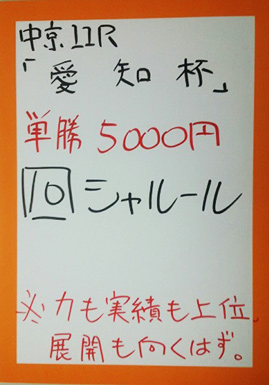 中京11R
「愛知杯」
単勝5000円
10シャルール
※力も実績も上位。
展開も向くはず。